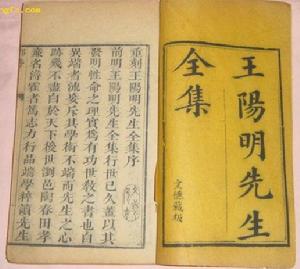 王陽明先生
全集
文德藏板
重刻王陽明先生全集序
前明王陽明先生全集行世已久蓋以其
賢明性命之理實爲有功世教之書也自
異端者流妄斥其學術不端而先生之心
跡幾不盡白於天下後世到邑陶春田孝
廉名潯霍者篤志力行品端學粹韻先生